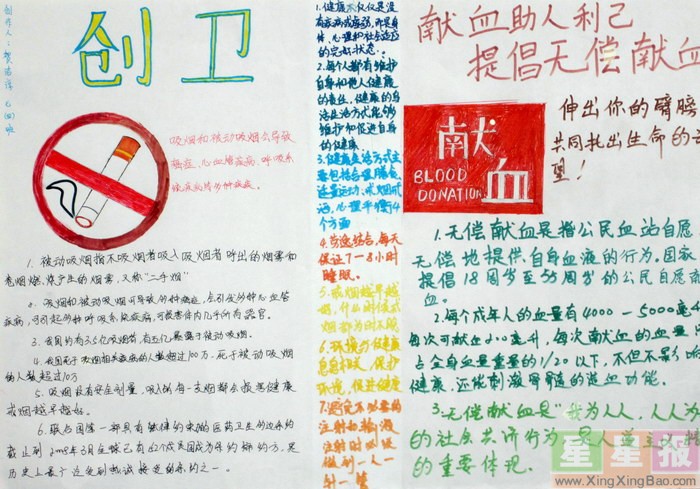 创卫
吸烟和被动吸烟会导致
癌症、心血管疾病、呼吸系
统疾病等多种疾病。
1. 被动吸烟指不吸烟者吸入吸烟者呼出的烟雾和
卷烟燃烧产生的烟雾，又称“二手烟”
2. 吸烟和被动吸烟可导致多种癌症，会引发多种心血管
疾病，可引起多种呼吸系统疾病，可损害体内几乎所有器官。
3. 我国约有3.5亿吸烟者，有五亿暴露于被动吸烟。
4. 我国死于吸烟相关疾病的人数超过100万，死于被动吸烟
的人数超过10万
5. 吸烟没有安全剂量，吸入的每一支烟都会损害健康
戒烟越早越好。
6.
截止到2008年3月
历史上最广泛
1.健康不仅仅是没
有疾病或虚弱，而是身
体、心理和社会适应
的完好状态。
2.每个人都有维护
自身和他人健康
的责任，健康的生
活生活方式能够
维护和促进自身
的健康
3.健康生活方式主
要包括合理膳食、
适量运动、戒烟限
酒、心理平衡4
个方面
4.劳逸结合，每天
保证7-8小时
睡眠。
5.戒烟越早越
好，什么时候戒
烟都为时不晚
6.环境与健康
息息相关，保护
环境，促进健康
7.避免不必要的
注射和输液，
注射时必须
做到一人一
针一管
献血助人利己
提倡无偿献血
献血
BLOOD
DONATION
伸出你的臂膀
共同托出生命的
望！
1.无偿献血是指公民血站自愿、
无偿地提供自身血液的行为。国家
提倡18周岁至55周岁的公民自愿
血。
2.每个成年人的血量有4000-5000毫
每次可献血200毫升，每次献血的血量
占全身血量重量的1/20以下，不但不影响
健康，还能刺激骨髓的造血功能。
3.无偿献血是“我为人人，人人为
的社会共济行为，是人道主义精
的重要体现。
星星报
www.XingXingBao.com